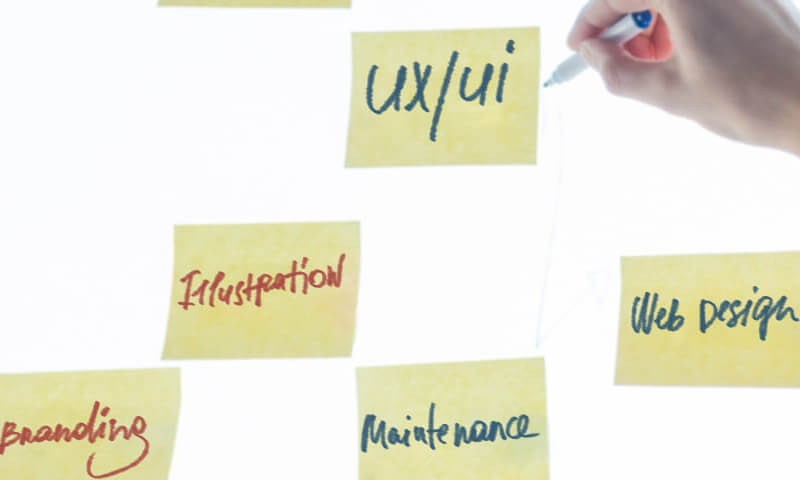 ux/ui
Illustration
Web Design
Branding
Maintenance